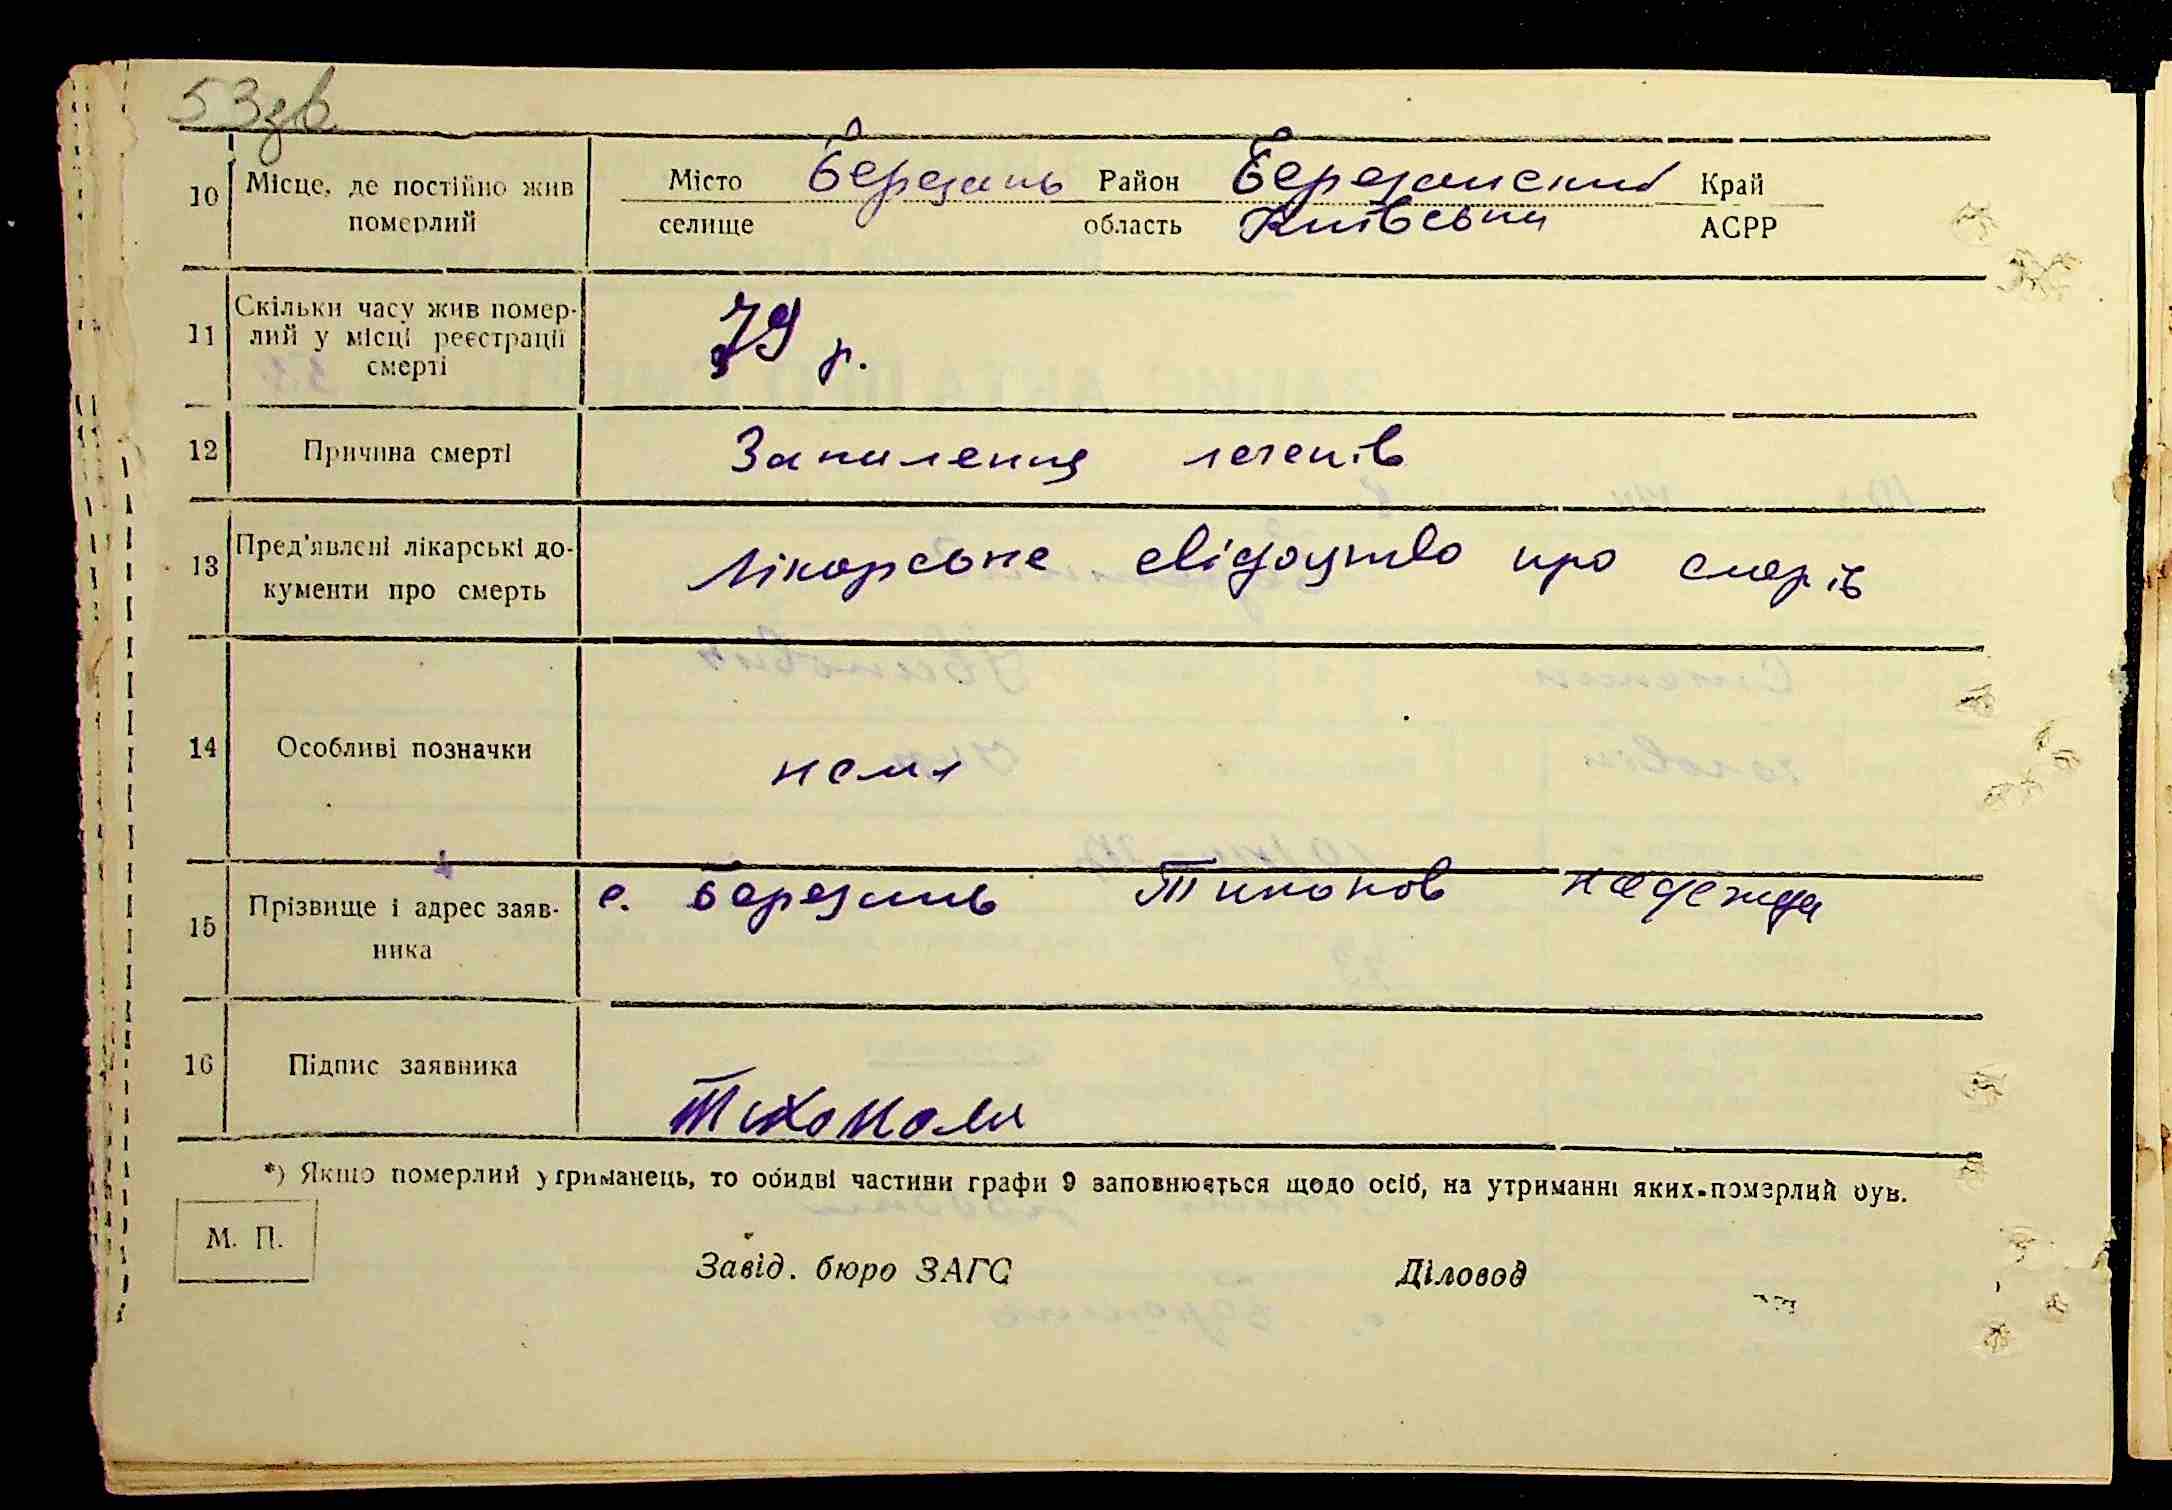 53зв
10 Місце, де постійно жив померлий Місто Березань Район Березанский Край
селище область Київськи АСРР
11 Скільки часу жив помер-
лий у місці реєстрації
смерті 79 р.
12 Причина смерті Запаления легенів
13 Пред'явлені лікарські до-
кументи про смерть Лікарське свідоцтво про смерть
14 Особливі позначки нема
15 Прізвище і адрес заяв-
ника с. Березань Тихонов Надежда
16 Підпис заявника
*) Якщо померлий утриманець, то обидві частини графи 9 заповнюється щодо осіб, на утриманні яких померлий був.
М. П.
Завід. бюро ЗАГС Діловод